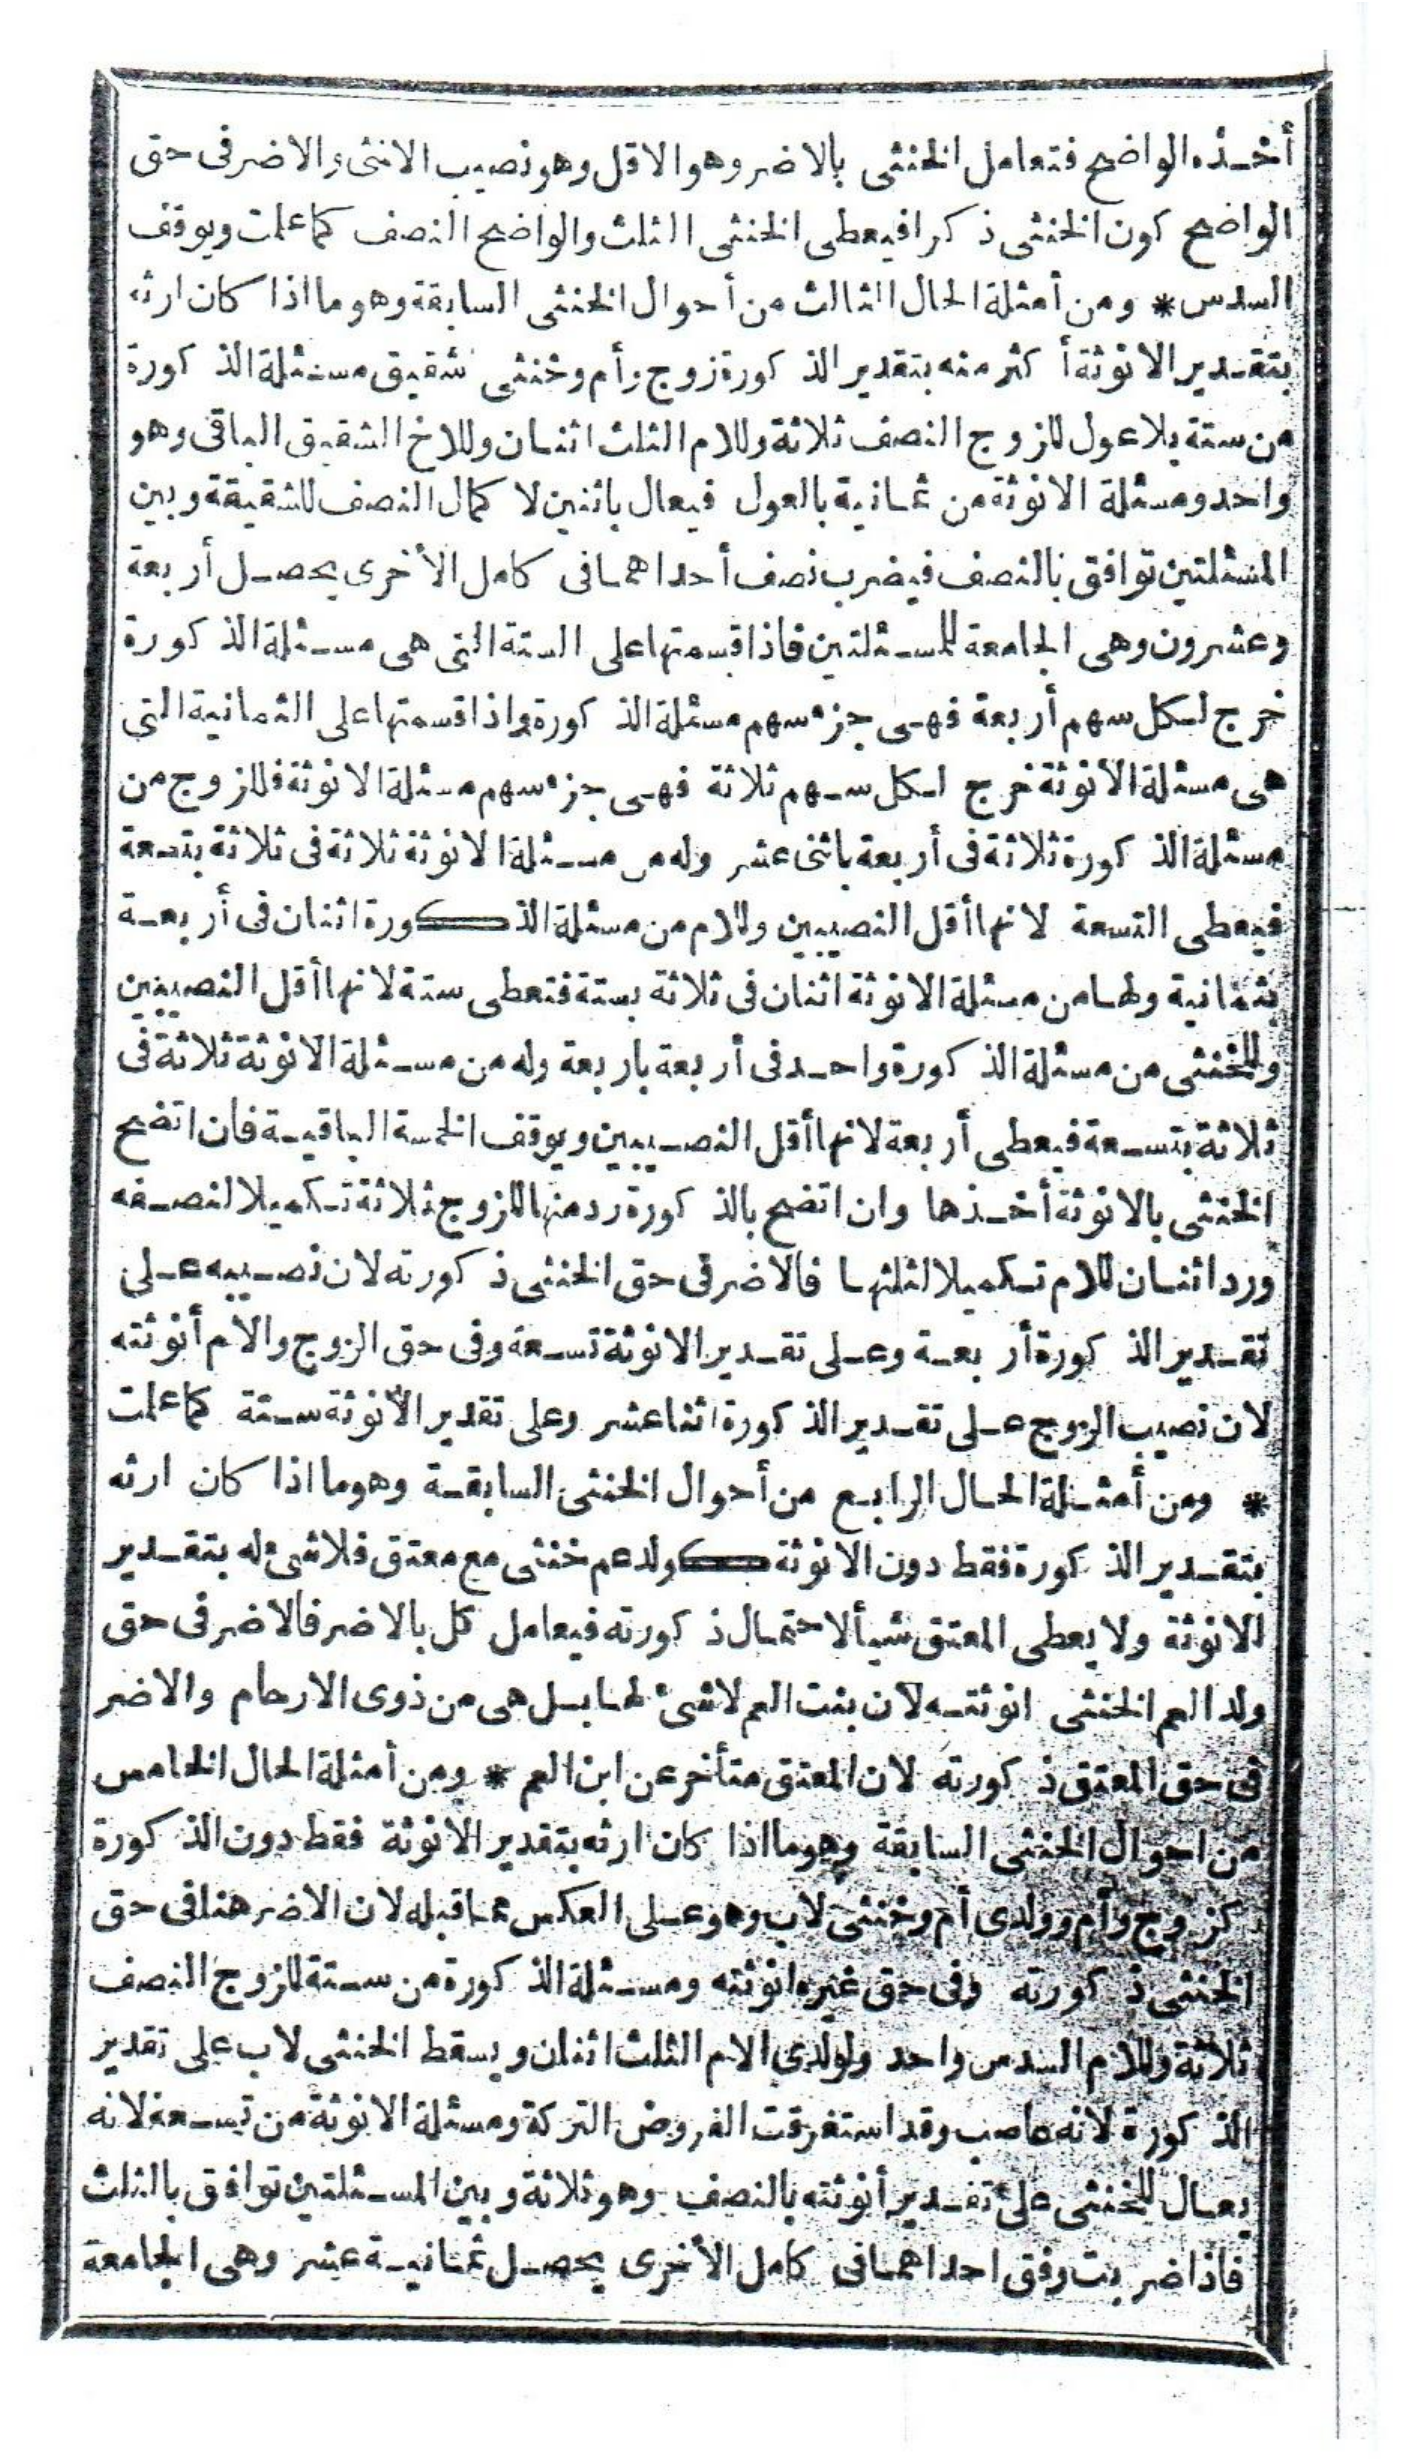 أخذه الواضح فتعامل الخنثى بالاضر وهو الاقل وهو نصيب الانثى والاضر فى حق
الواضح كون الخنثى ذكرا فيعطى الخنثى الثلث والواضح النصف كما علمت ويوقف
السدس * ومن أمثلة الحال الثالث من أحوال الخنثى السابقة وهو ما اذا كان ارثه
بتقدير الانوثة أكثر منه بتقدير الذكورة زوج وأم وخنثى شقيق مسئلة الذكورة
من ستة بلا عول للزوج النصف ثلاثة وللام الثلث اثنان وللاخ الشقيق الباقى وهو
واحد ومسئلة الانوثة من ثمانية بالعول فيعال باثنين لا كمال النصف للشقيقة وبين
المسئلتين توافق بالنصف فيضرب نصف أحداهما فى كامل الأخرى يحصل أربعة
وعشرون وهى الجامعة للمسئلتين فاذا قسمتها على الستة التى هى مسئلة الذكورة
خرج لكل سهم أربعة فهى جزء سهم مسئلة الذكورة واذا قسمتها على الثمانية التى
هى مسئلة الأنوثة خرج لكل سهم ثلاثة فهى جزء سهم مسئلة الانوثة فللزوج من
مسئلة الذكورة ثلاثة فى أربعة باثنى عشر وله من مسئلة الانوثة ثلاثة فى ثلاثة بتسعة
فيعطى التسعة لانها أقل النصيبين وللام من مسئلة الذكورة اثنان فى أربعة
بثمانية ولها من مسئلة الانوثة اثنان فى ثلاثة بستة فتعطى ستة لانها أقل النصيبين
وللخنثى من مسئلة الذكورة واحد فى أربعة باربعة وله من مسئلة الانوثة ثلاثة فى
ثلاثة بتسعة فيعطى أربعة لانها أقل النصيبين ويوقف الخمسة الباقية فان اتضح
الخنثى بالانوثة أخذها وان اتضح بالذكورة رد منها للزوج ثلاثة تكميلا لنصفه
ورد اثنان للام تكميلا لثلثها فالاضر فى حق الخنثى ذكورته لان نصيبه على
تقدير الذكورة أربعة وعلى تقدير الانوثة تسعة وفى حق الزوج والأم أنوثته
لان نصيب الزوج على تقدير الذكورة اثنا عشر وعلى تقدير الأنوثة ستة كما علمت
* ومن أمثلة الحال الرابع من أحوال الخنثى السابقة وهو ما اذا كان ارثه
بتقدير الذكورة فقط دون الانوثة كولد عم خنثى مع معتق فلا شئ له بتقدير
الانوثة ولا يعطى المعتق شيأ لاحتمال ذكورته فيعامل كل بالاضر فالاضر فى حق
ولد العم الخنثى انوثته لأن بنت العم لا شئ لها بل هى من ذوى الارحام والاضر
فى حق المعتق ذكورته لان المعتق متأخر عن ابن العم * ومن أمثلة الحال الخامس
من احوال الخنثى السابقة وهو ما اذا كان ارثه بتقدير الانوثة فقط دون الذكورة
كزوج وأم وولدى أم وخنثى لاب وهو على العكس مما قبله لان الاضر هنا فى حق
الخنثى ذكورته وفى حق غيره انوثته ومسئلة الذكورة من ستة للزوج النصف
ثلاثة وللام السدس واحد ولولدى الام الثلث اثنان ويسقط الخنثى لاب على تقدير
الذكورة لانه عاصب وقد استغرقت الفروض التركة ومسئلة الانوثة من تسعة لانه
يعال للخنثى على تقدير أنوثته بالنصف وهو ثلاثة وبين المسئلتين توافق بالثلث
فاذا ضربت وفق احداهما فى كامل الأخرى يحصل ثمانية عشر وهى الجامعة